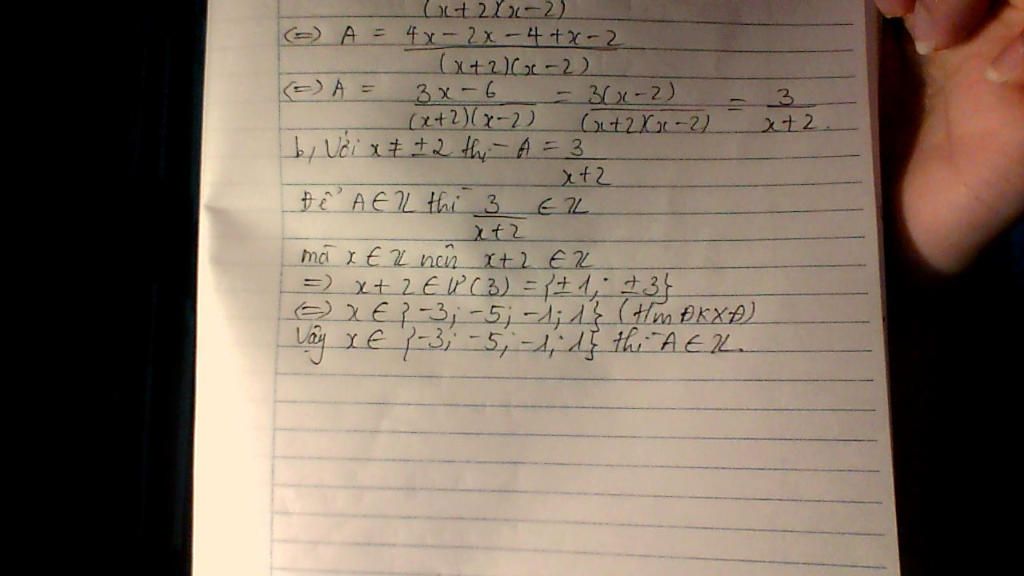 (x+2)(x-2)
(=) A = 4x-2x-4+x-2
(x+2)(x-2)
(=) A = 3x-6 / (x+2)(x-2) = 3(x-2) / (x+2)(x-2) = 3 / x+2.
b, Với x ≠ ±2 thì A = 3 / x+2
Để A ∈ Z thì 3 / x+2 ∈ Z
mà x ∈ Z nên x+2 ∈ Z
=) x+2 ∈ Ư(3) = {±1; ±3}
(=) x ∈ {-3; -5; -1; 1} (t/m ĐKXĐ)
Vậy x ∈ {-3; -5; -1; 1} thì A ∈ Z.